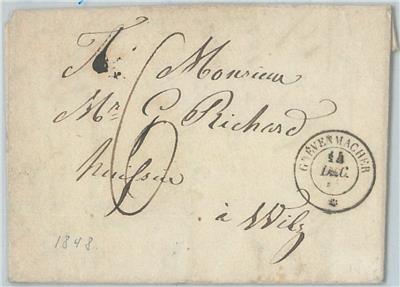 A Monsieur
Mr G Richard
huissier
à Wilz
6
GREVENMACHER
14
DEC.
1848